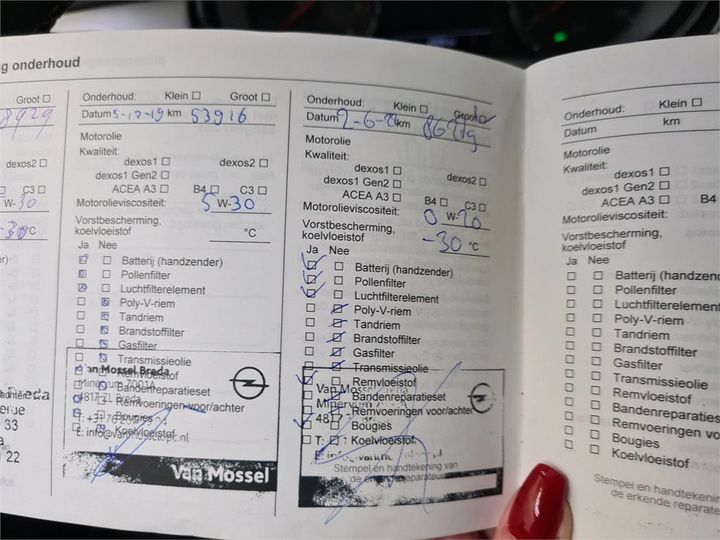 g onderhoud
Groot
dexos2
C3
W-30
-30 °C
33
22
Onderhoud: Klein Groot
Datum 5-12-19 km 53916
Motorolie
Kwaliteit:
dexos1 dexos2
dexos1 Gen2
ACEA A3 B4 C3
Motorolieviscositeit: 5 W-30
Vorstbescherming,
koelvloeistof °C
Ja Nee
Batterij (handzender)
Pollenfilter
Luchtfilterelement
Poly-V-riem
Tandriem
Brandstoffilter
Gasfilter
Transmissieolie
Remvloeistof
Bandenreparatieset
Remvoeringen voor/achter
Bougies
Koelvloeistof
Van Mossel Breda
Minervum 7001A
4817 ZL Breda
Van Mossel
Onderhoud: Klein Groot
Datum 2-6- km
Motorolie
Kwaliteit:
dexos1 dexos2
dexos1 Gen2
ACEA A3 B4 C3
Motorolieviscositeit: 0 W-20
Vorstbescherming,
koelvloeistof -30 °C
Ja Nee
Batterij (handzender)
Pollenfilter
Luchtfilterelement
Poly-V-riem
Tandriem
Brandstoffilter
Gasfilter
Transmissieolie
Remvloeistof
Bandenreparatieset
Remvoeringen voor/achter
Bougies
Koelvloeistof
Van Mossel
Minervum
4817
Stempel en handtekening van
de erkende reparateur
Onderhoud: Klein
Datum km
Motorolie
Kwaliteit:
dexos1
dexos1 Gen2
ACEA A3 B4
Motorolieviscositeit:
Vorstbescherming,
koelvloeistof
Ja Nee
Batterij (handzend
Pollenfilter
Luchtfilterelement
Poly-V-riem
Tandriem
Brandstoffilter
Gasfilter
Transmissieolie
Remvloeistof
Bandenreparaties
Remvoeringen voo
Bougies
Koelvloeistof
Stempel en handtekening
de erkende reparate